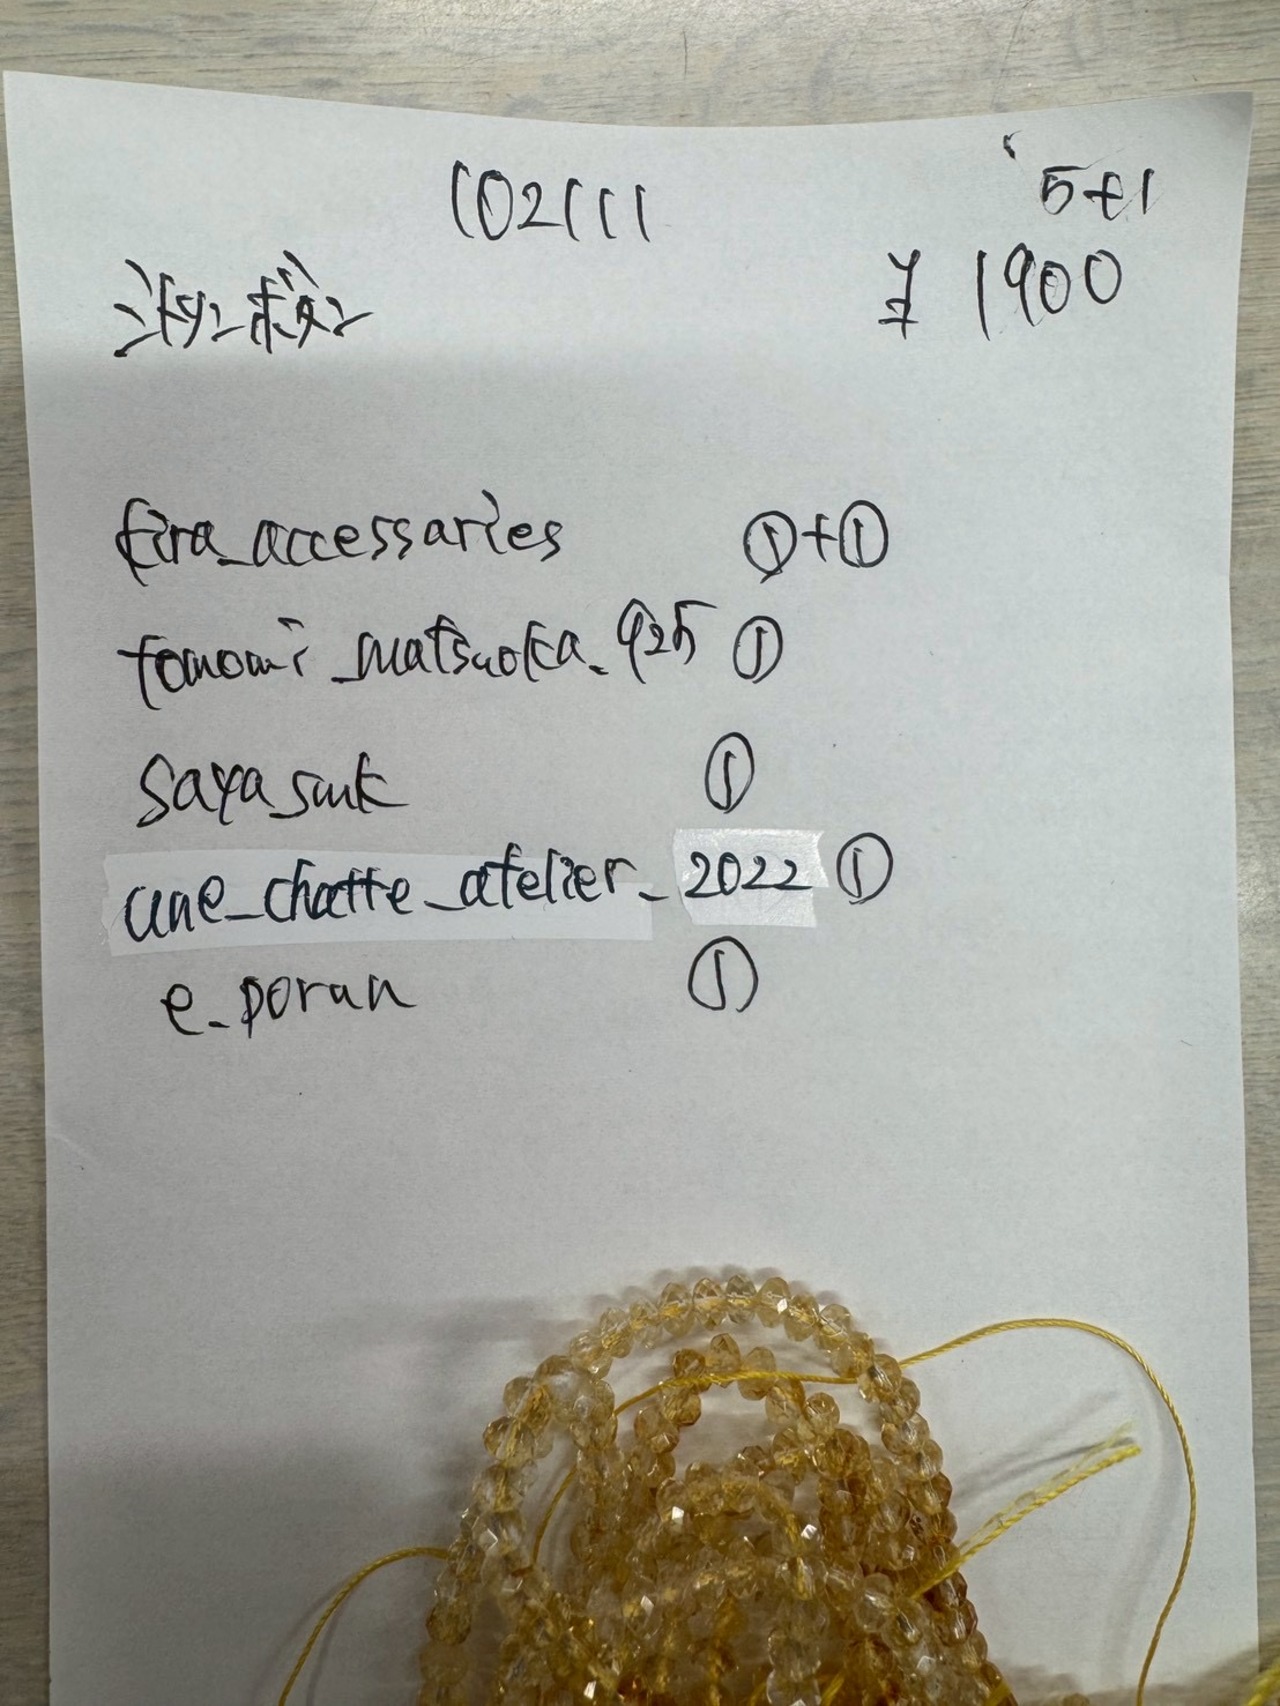 102111
5+1
シトリンボタン
¥ 1900
kira_accessaries ①+①
tomomi_matsuoka_925 ①
sayasmk ①
une_chatte_atelier_2022 ①
e_poran ①